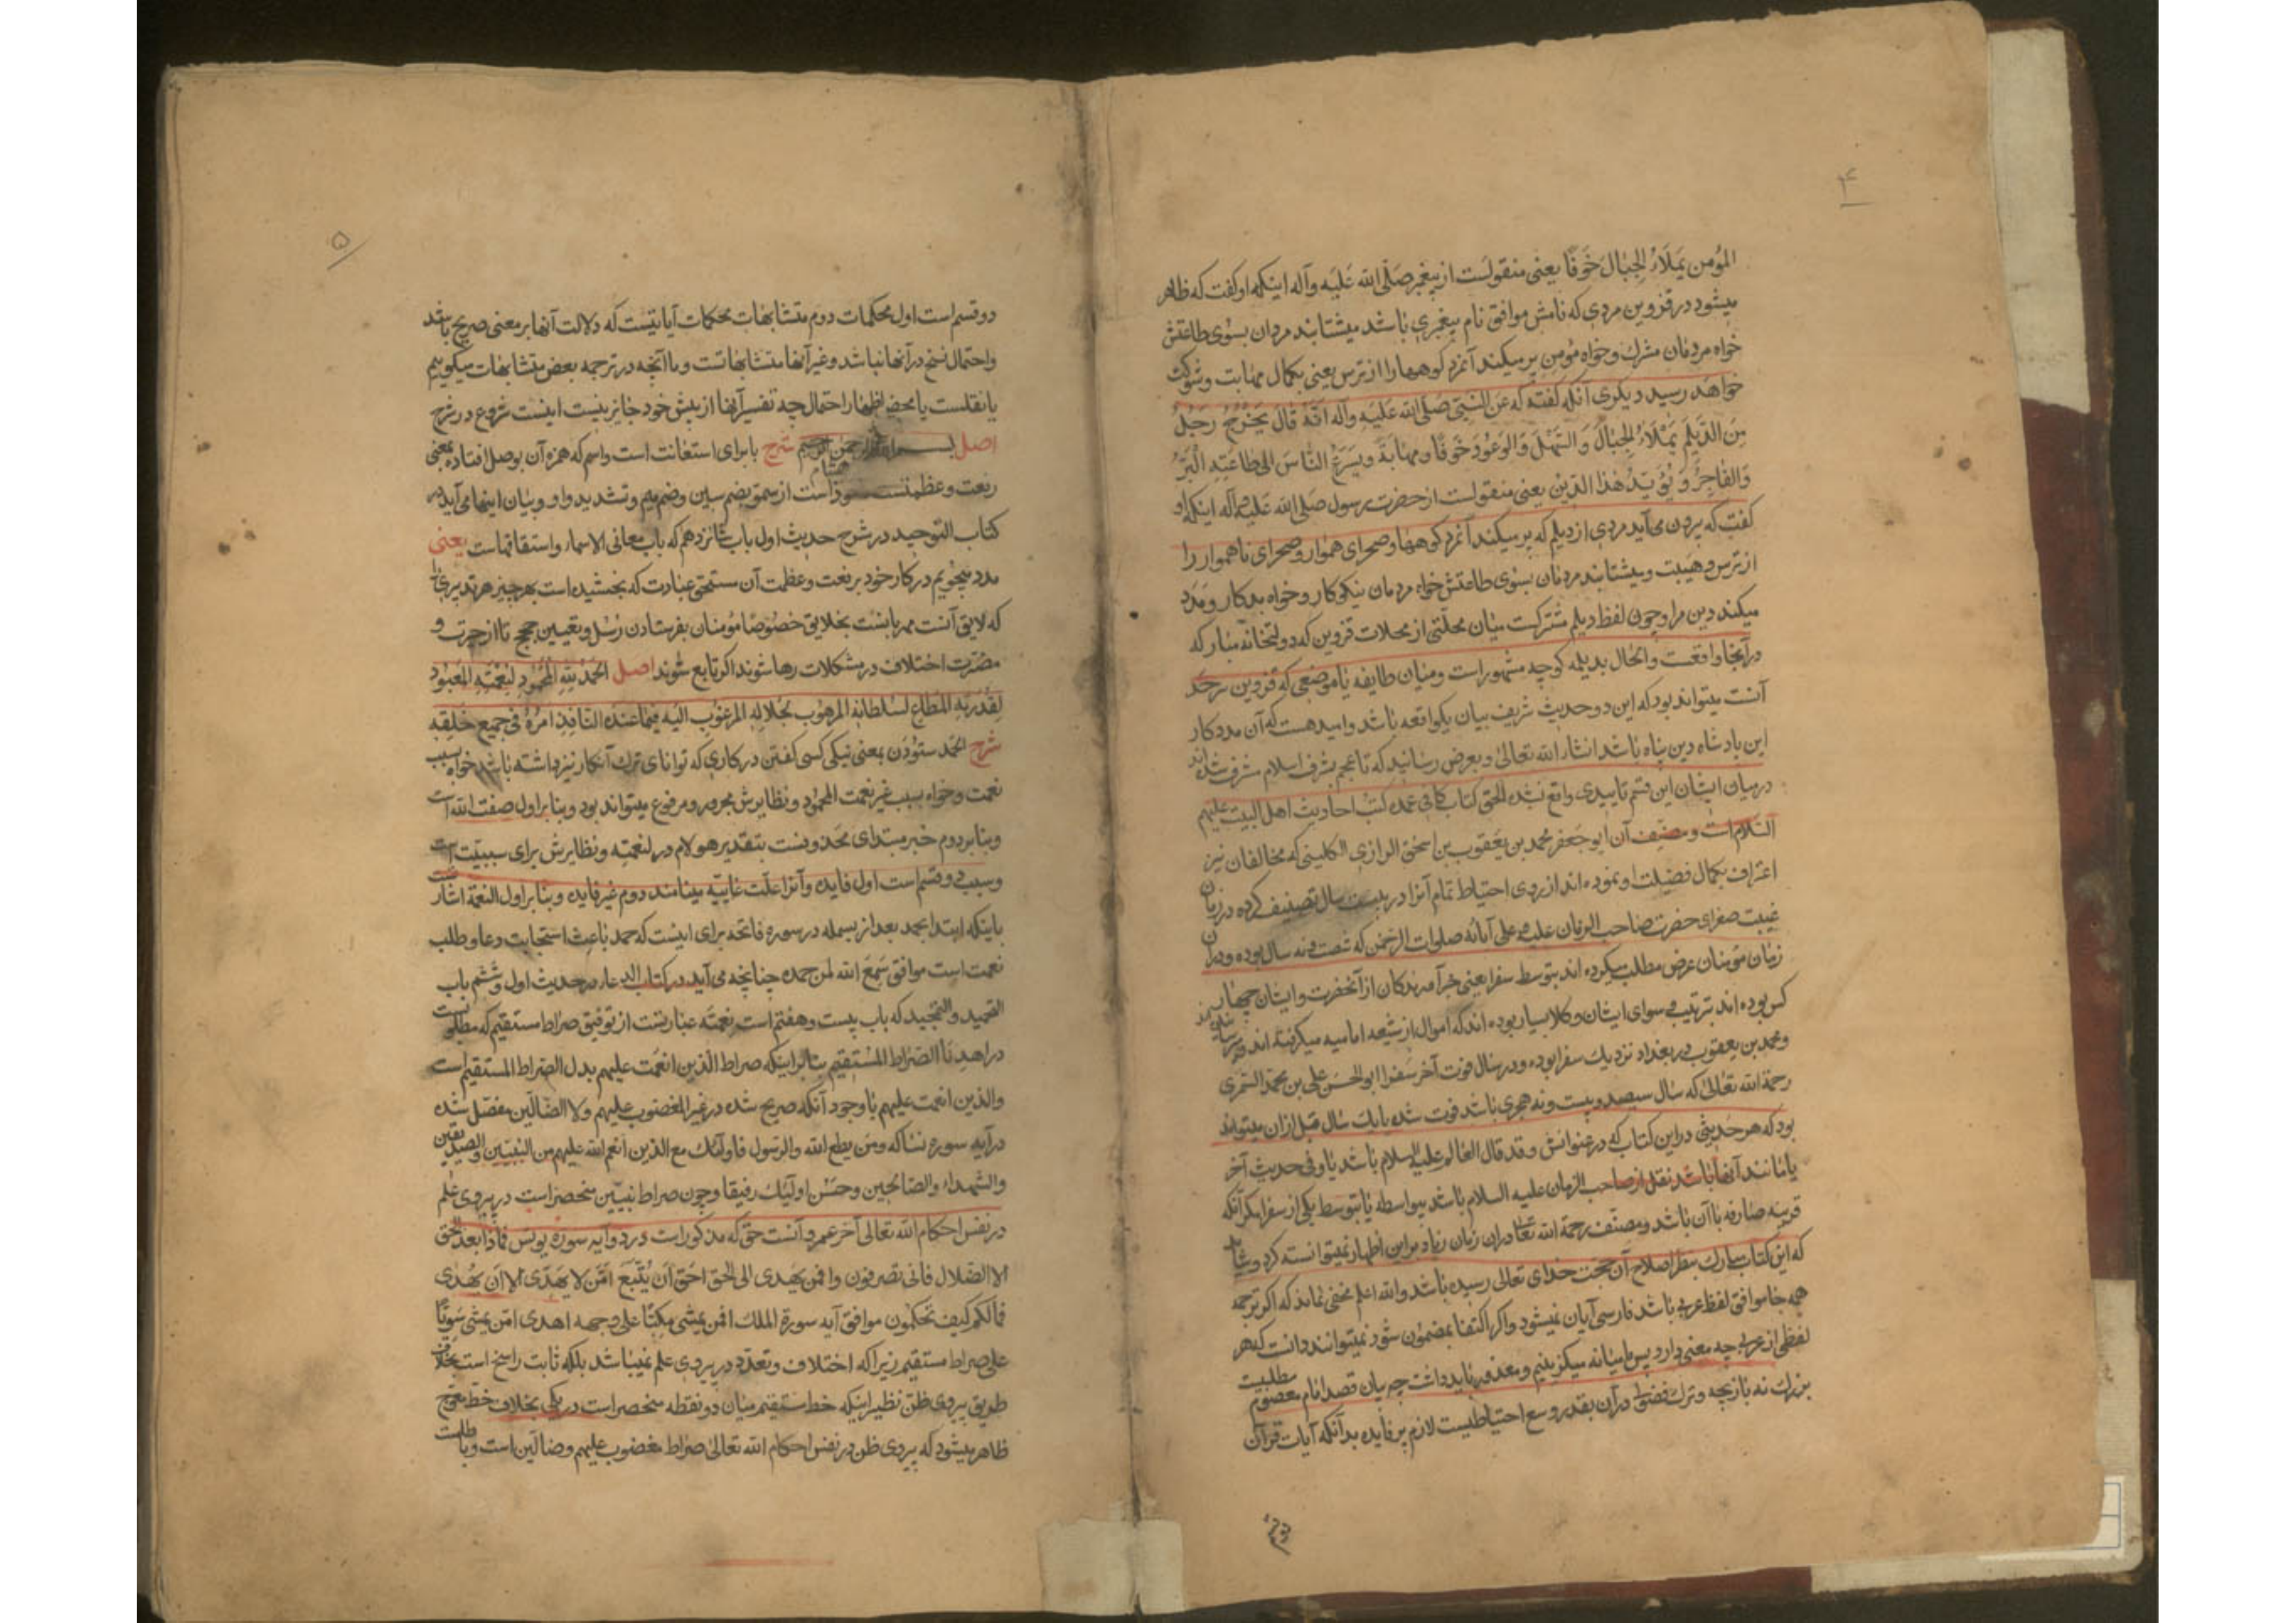 ۴
المؤمن یملاء الجبال خوفا یعنی منقولست از پیغمبر صلی الله علیه وآله اینکه او گفت که ظاهر
میشود در قزوین مردی که نامش موافق نام پیغمبری باشد میشتابند مردمان بسوی طاعتش
خواه مردمان مشرک و خواه مؤمن پر میکند آنمرد کوهها را از ترس یعنی بکمال مهابت و شوکت
خواهد رسید دیگری آنکه گفته که عن النبی صلی الله علیه وآله انه قال یخرج رجل
من الدیلم یملاء الجبال و السهل والوعود خوفا ومهابة ویسرع الناس الی طاعته البر
والفاجر و یؤید هذا الدین یعنی منقولست از حضرت رسول صلی الله علیه وآله اینکه او
گفت که بیرون می‌آید مردی از دیلم که پر میکند آنمرد کوهها و صحرای هموار و صحرای ناهموار را
از ترس و هیبت و میشتابند مردمان بسوی طاعتش خواه مردمان نیکوکار و خواه بدکار و مدد
میکند دین مرا و چون لفظ دیلم مشترکست میان محلتی از محلات قزوین که دولتخانه مبارکه
در آنجا واقعست و الحال بدیلمه کوچه مشهور است و میان طایفه یا موضعی که قزوین سرحد
آنست میتواند بود که این دو حدیث شریف بیان یکواقعه باشد و امید هست که آن مددکار
این پادشاه دین پناه باشد انشاء الله تعالی و بعرض رسانید که تا عجم بشرف اسلام مشرف شده‌اند
در میان ایشان این قسم تاییدی واقع نشده الحق کتاب کافی عمده کتب احادیث اهل البیت علیهم
السلام است و مصنف آن ابو جعفر محمد بن یعقوب بن اسحق الرازی الکلینی که مخالفان نیز
اعتراف بکمال فضیلت او نموده‌اند از روی احتیاط تمام آنرا در بیست سال تصنیف کرده در زمان
غیبت صغرای حضرت صاحب الزمان علیه و علی آبائه صلوات الرحمن که شصت و نه سال بوده و در آن
زمان مؤمنان عرض مطلب میکرده‌اند بتوسط سفرا یعنی خبر آورندگان از آنحضرت و ایشان چهار
کس بوده‌اند بترتیب و سوای ایشان وکلا بسیار بوده‌اند که اموال از شیعه امامیه میگرفته‌اند و میرسانیده‌اند
و محمد بن یعقوب در بغداد نزدیک سفرا بوده و در سال فوت آخر سفرا ابو الحسن علی بن محمد السمری
رحمة الله تعالی که سال سیصد و بیست و نه هجری باشد فوت شده یا یک سال قبل از آن میتواند
بود که هر حدیثی در این کتاب که در عنوانش وقد قال العالم علیه السلام باشد یا وفی حدیث آخر
یا مانند آنها باشد نقل از صاحب الزمان علیه السلام باشد بیواسطه یا بتوسط یکی از سفرا مگر آنکه
قرینه صارفه با آن باشد و مصنف رحمة الله تعالی در آن زمان زیاده بر این اظهار نمیتوانسته کرد و شاید
که این کتاب مبارک بنظر اصلاح آن حجت خدای تعالی رسیده باشد والله اعلم مخفی نماند که اگر ترجمه
همه جا موافق لفظ عربی باشد فارسی آیان نمیشود و اگر اکتفا بمضمون شود نمیتوانند دانست که هر
لفظی از عربی چه معنی دارد پس ما میانه میگزینیم و معذور باید داشت چه بیان قصد امام معصوم مطلبیست
بزرک نه بازیچه و ترک فضولی در آن بقدر وسع احتیاطیست لازم پر فایده بدآنکه آیات قرآن
۵
دو قسم است اول محکمات دوم متشابهات محکمات آیاتیست که دلالت آنها بر معنی صریح باشد
و احتمال نسخ در آنها نباشد و غیر آنها متشابهاتست و ما آنچه در ترجمه بعض متشابهات میگوییم
یا نقلست یا محض اظهار احتمال چه تفسیر آنها از پیش خود جایز نیست اینست شروع در شرح
اصل بسم الله الرحمن الرحیم شرح با برای استعانت است و اسم که همزه آن بوصل افتاده بمعنی
رفعت و عظمتست از سمو بضم سین وضم میم و تشدید واو و بیان اینها می‌آید در
کتاب التوحید در شرح حدیث اول باب شانزدهم که باب معانی الاسماء واشتقاقهاست یعنی
مدد میجویم در کار خود برفعت و عظمت آن مستحق عبادت که بخشیده است بهر چیز هر تدبیری را
که لایق آنست مهربانست بخلایق خصوصا مؤمنان بفرستادن رسل و تعیین حجج تا از حیرت و
مضرت اختلاف در مشکلات رها شوند اگر تابع شوند اصل الحمد لله المحمود لنعمته المعبود
لقدرته المطاع لسلطانه المرهوب لجلاله المرغوب الیه فیما عنده النافذ امره فی جمیع خلقه
شرح الحمد ستودن بمعنی نیکی کسی گفتن در کاری که توانای ترک آنکار نیز داشته باشد خواه بسبب
نعمت و خواه بسبب غیر نعمت المحمود و نظایرش مجرور و مرفوع میتواند بود و بنابر اول صفت الله است
و بنابر دوم خبر مبتدای محذوفست بتقدیر هو لام در لنعمته و نظایرش برای سببیت است
و سبب دو قسم است اول فایده و آنرا علت غاییه مینامند دوم غیر فایده و بنابر اول النعمة اشارتست
باینکه ابتدا بحمد بعد از بسمله در سوره فاتحه برای اینست که حمد باعث استجابت دعا و طلب
نعمت است موافق سمع الله لمن حمده چنانچه می‌آید در کتاب الدعاء در حدیث اول و ششم باب
التحمید والتمجید که باب بیست و هفتم است نعمته عبارتست از توفیق صراط مستقیم که مطلوبست
در اهدنا الصراط المستقیم بنابر اینکه صراط الذین انعمت علیهم بدل الصراط المستقیم است
والذین انعمت علیهم با وجود آنکه صریح شده در غیر المغضوب علیهم ولا الضالین مفصل شده
در آیه سوره نسا که ومن یطع الله والرسول فاولئک مع الذین انعم الله علیهم من النبیین والصدیقین
والشهداء والصالحین وحسن اولئک رفیقا و چون صراط نبیین منحصر است در پیروی علم
در نفس احکام الله تعالی آخر عمر و آنست حق که مذکور است در دو آیه سوره یونس فماذا بعد الحق
الا الضلال فانی تصرفون و افمن یهدی الی الحق احق ان یتبع امن لا یهدی الا ان یهدی
فما لکم کیف تحکمون موافق آیه سورة الملک افمن یمشی مکبا علی وجهه اهدی امن یمشی سویا
علی صراط مستقیم زیرا که اختلاف و تعدد در پیروی علم نمیباشد بلکه ثابت راسخ است بخلاف
طریق پیروی ظن نظیر اینکه خط مستقیم میان دو نقطه منحصر است در یکی بخلاف خط معوج
ظاهر میشود که پیروی ظن در نفس احکام الله تعالی صراط مغضوب علیهم وضالین است